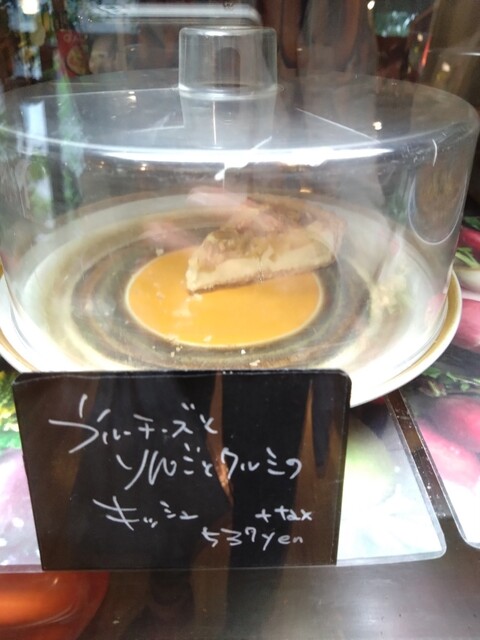 ブルーチーズと
りんごとクルミの
キッシュ
+tax
537yen